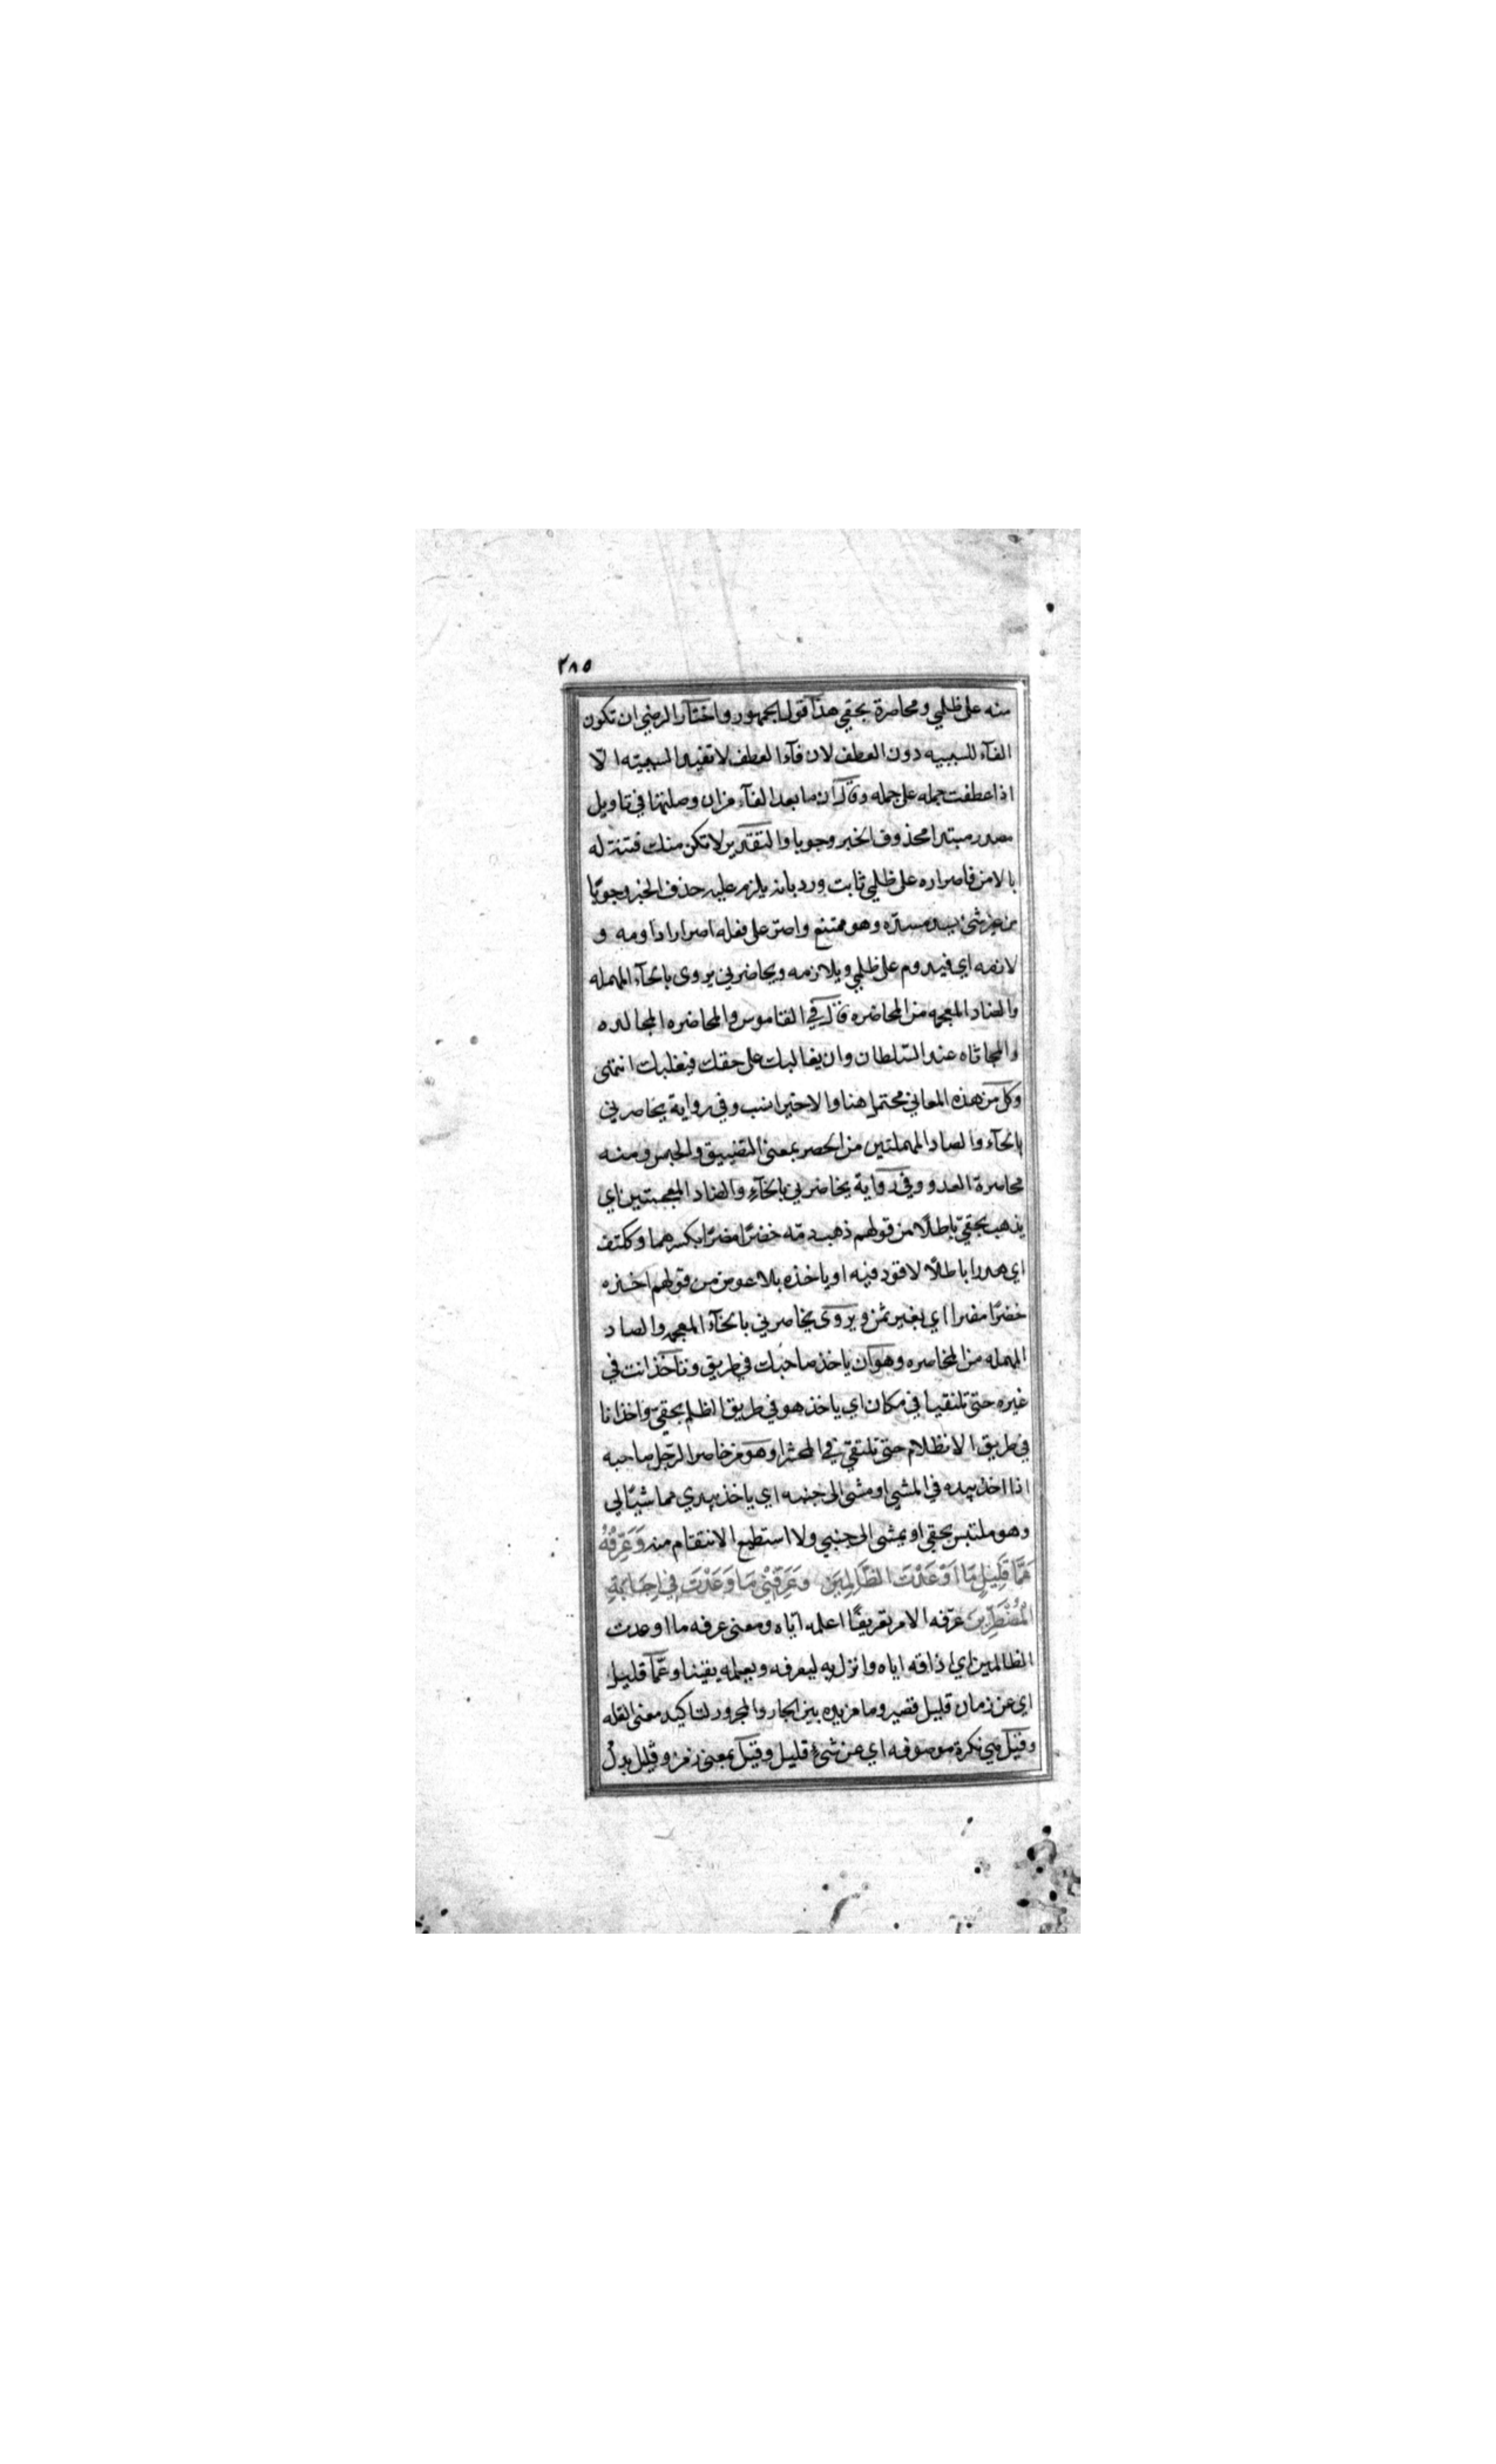 ٢٨٥
منه على ظلمي ومحاصرة بحقي هذا قول الجمهور واختار الرضي ان تكون
الفآء للسببيه دون العطف لان فآء العطف لا تفيد السببيته الّا
اذا عطفت جمله على جمله وقال ان ما بعد الفآء من ان وصلتها في تاويل
مصدر مبتدا محذوف الخبر وجوبا والتقدير لا تكن منك فتنة له
بالامن فاصراره على ظلمي ثابت ورد بانه يلزم عليه حذف الخبر وجوبًا
من غير شئ يسد مسدّه وهو ممتنع واصر على فعله اصرارا داومه و
لازمه اي فيدوم على ظلمي ويلازمه ويحاضرني يروى بالحآء المهمله
والضاد المعجمه من المحاضره قال في القاموس والمحاضره المجالده
والمجاثاه عند السّلطان وان يغالبك على حقك فيغلبك انتهى
وكل من هذه المعاني محتمل هنا والاخير انسب وفي رواية يحاصرني
بالحآء والصاد المهملتين من الحصر بمعنى التضييق والحبس ومنه
محاصرة العدو وفي رواية يخاضرني بالخآء والضاد المعجمتين اي
يذهب بحقيّ باطلًا من قولهم ذهب دمّه خضرًا مضرًا بكسرهما وككتف
اي هدرا باطلًا لا قود فيه او ياخذه بلا عوض من قولهم اخذه
خضرًا مضرا اي بغير ثمن ويروى يخاصرني بالخآء المعجمه والصاد
المهمله من المخاصره وهو ان ياخذ صاحبك في طريق وتاخذ انت في
غيره حتى تلتقيا في مكان اي ياخذ هو في طريق الظلم بحقيّ واخذ انا
في طريق الانظلام حتى نلتقيّ في المحشر او هو من خاصر الرّجل صاحبه
اذا اخذ بيده في المشي او مشى الى جنبه اي ياخذ بيدي مماشيًا لي
وهو ملتبس بحقي او يمشى الى جنبي ولا استطيع الانتقام منه وَعَرِّفْهُ
عَمَّا قَلِيلٍ مَّا اَوْعَدْتَ الظَّالِمِيَن وَعَرِّفْنِي مَا وَعَدْتَ فِي اِجَابَةِ
الْمُضْطَرِّيَن عرّفه الامر تعريفًا اعلمه ايّاه ومعنى عرفه ما اوعدت
الظالمين اي اذاقه اياه وانزل به ليعرفه ويعلمه يقينا وعمّا قليل
اي عن زمان قليل قصير وما مزيده بين الجار والمجرور لتاكيد معنى القله
وقيل هي نكرة موصوفه اي عن شئ قليل وقيل بمعنى زمن وقليل بدلٌ